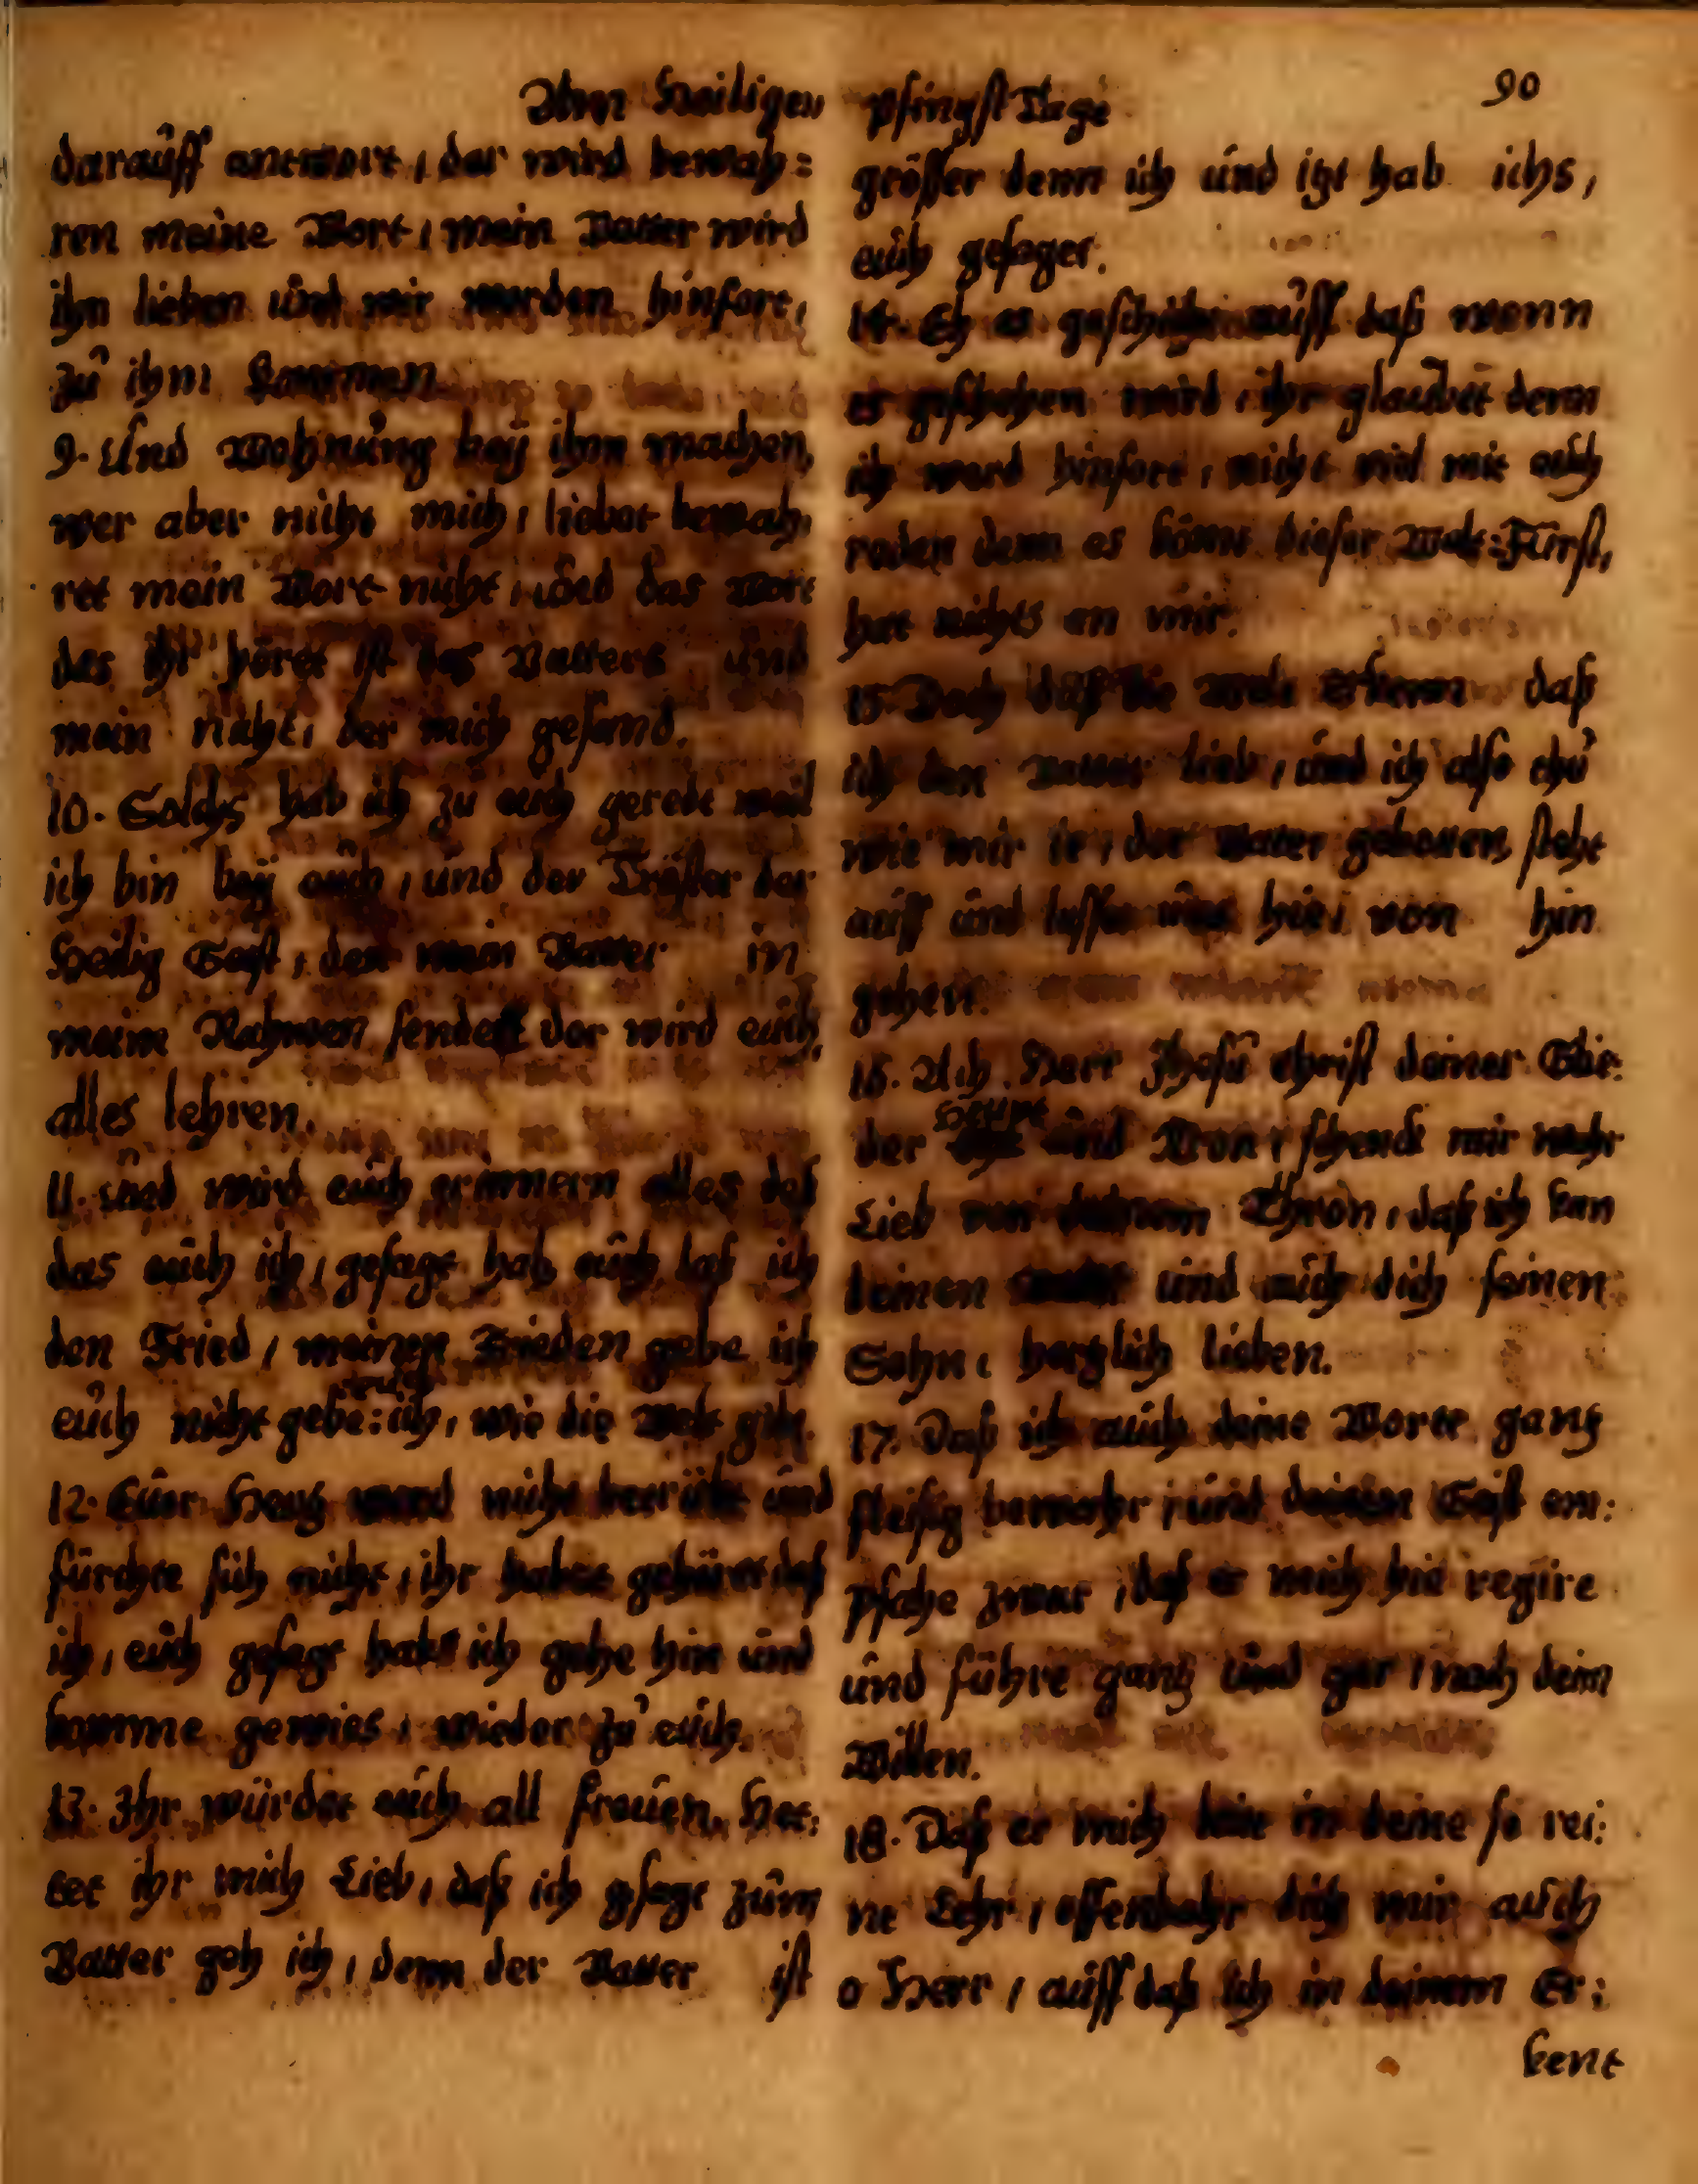 Am Heiligen Pfingst Tage 90
darauff antwort, der wird bewah=
ren meine Wort, mein Vatter wird
ihn lieben und wir werden hinfort,
zu ihm kommen
9. Und Wohnung bey ihm machen,
wer aber nicht mich, liebet bewah,
ret mein Wort nicht, und das Wort
das ihr höret ist des Vatters und
mein nicht, der mich gesand.
10. Solchs hab ich zu euch geredt weil
ich bin bey euch, und der Tröster der
Heilig Geist, den mein Vatter in
meim Nahmen sendett der wird euch,
alles lehren.
11. und wird euch erinnern alles deß
das euch ich, gesagt hab, euch laß ich
den Fried, meinen Frieden gebe ich
euch nicht gebe: euch ich, wie die Welt gibt.
12. Euer Hertz werd nicht betrübt und
fürchte sich nicht, ihr habet gehöret daß
ich, euch gesagt hab ich gehe hin und
komme gewies, wieder zu euch.
13. Ihr würdet euch all freuen, Het:
tet ihr mich Lieb, daß ich gsagt zum
Vatter geh ich, denn der Vatter ist
größer denn ich und itzt hab ichs,
euch gesaget.
14. Eh es geschicht auff daß wenn
es geschehen wird, ihr glaubet denn
ich werd hinfort, nicht viel mit euch
reden denn es kömt dieser Welt=Fürst,
hat nichts an mir.
15. Doch daß die Welt erkenn daß
ich den Vatter lieb, und ich also thu
wie mir der Vatter gebotten, steht
auff und lasset uns hie, von hin
gehen.
16. Ach Herr Jhesu Christ deiner Glie:
der Heupt und Kron, schenck mir mehr
Lieb von deinem Thron, daß ich kan
deinen und auch dich seinen
Sohn, hertzlich lieben.
17. Daß ich auch deine Worte gantz
fleißig bewahr, und deinen Geist em:
pfahe zwar, daß er mich hie regire
und führe gantz und gar, nach deim
Willen.
18. Daß er mich leite in deine so rei:
ne Lehr, offenbahr dich mir auch
o Herr, auff daß ich in deinem Er:
kent